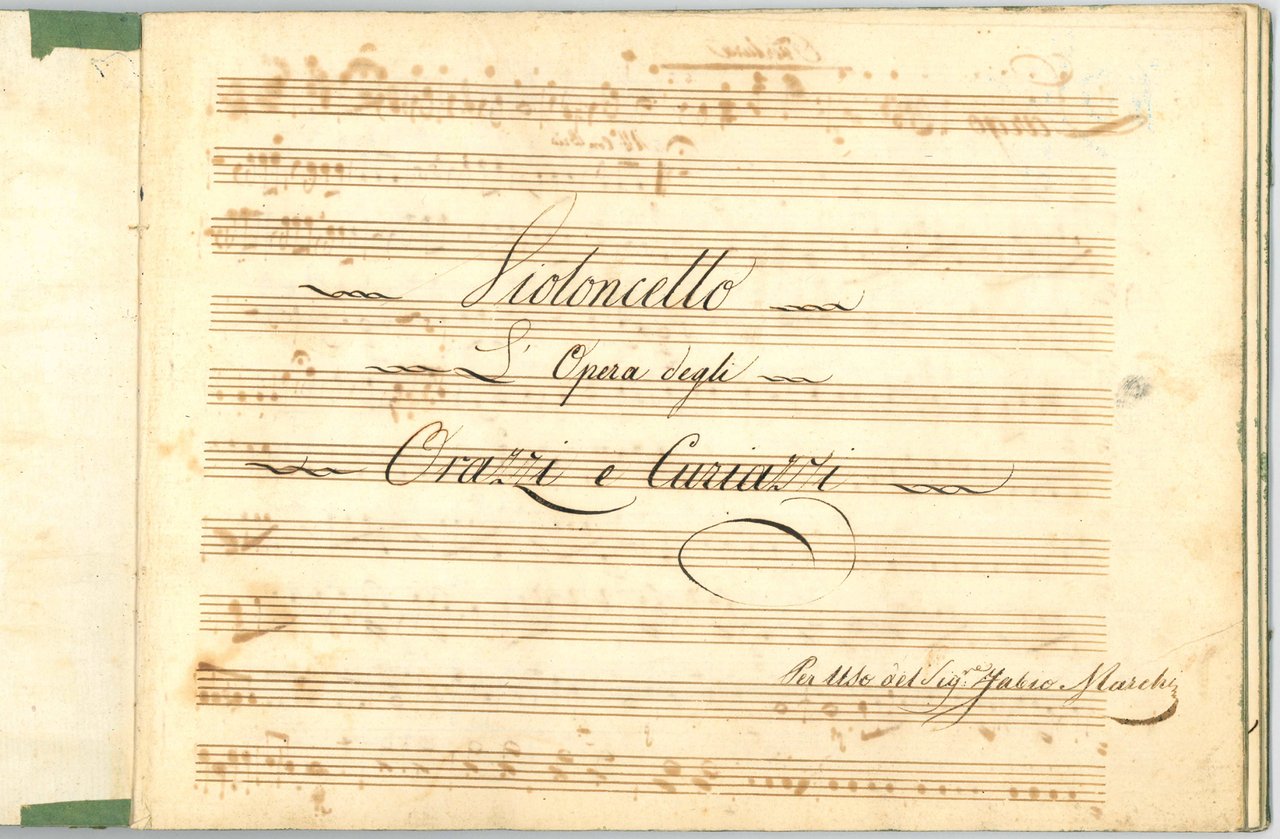 Violoncello
L' Opera degli
Orazzi e Curiazzi
Per Uso del Sig.re Fabio Marchi